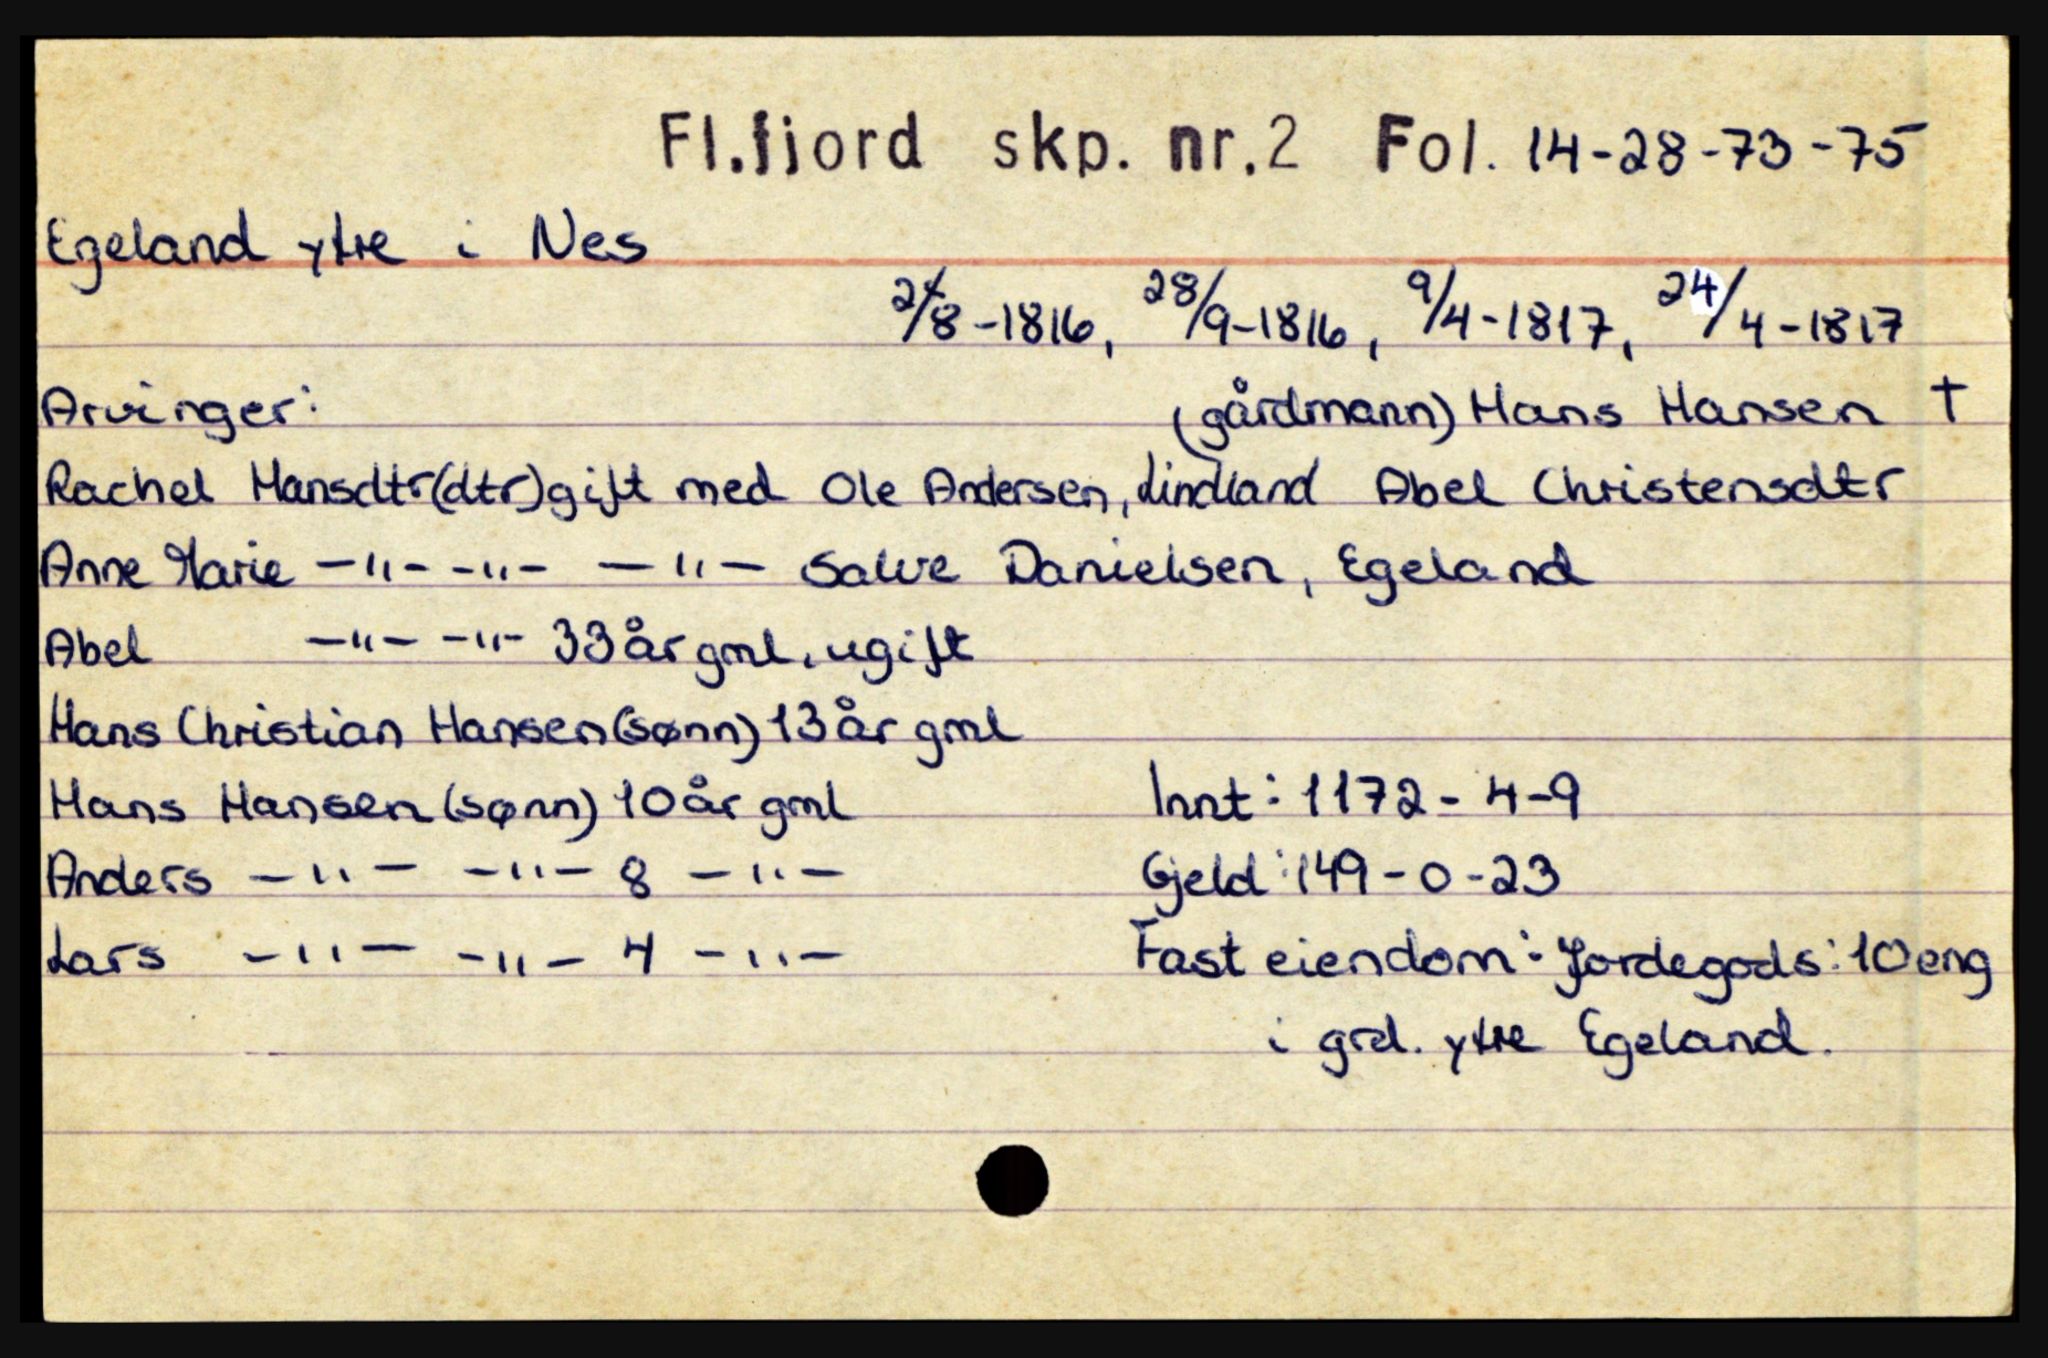 Fl.fjord skp. nr.2 Fol. 14-28-73-75
Egeland ytre i Nes
/8-1816, 28/9-1816, 9/4-1817, 24/4-1817
Arvinger: (gårdmann) Hans Hansen †
Rachel Hansdtr(dtr)gift med Ole Andersen, Lindland Abel Christensdtr
Anne Marie -"- -"- -"- Salve Danielsen, Egeland
Abel -"- -"- 33 år gml, ugift
Hans Christian Hansen(sønn) 13 år gml
Hans Hansen (sønn) 10 år gml Innt: 1172-4-9
Anders -"- -"- 8 -"- Gjeld: 149-0-23
Lars -"- -"- 4 -"- Fast eiendom: Jordegods: 10 eng
i grd. ytre Egeland.